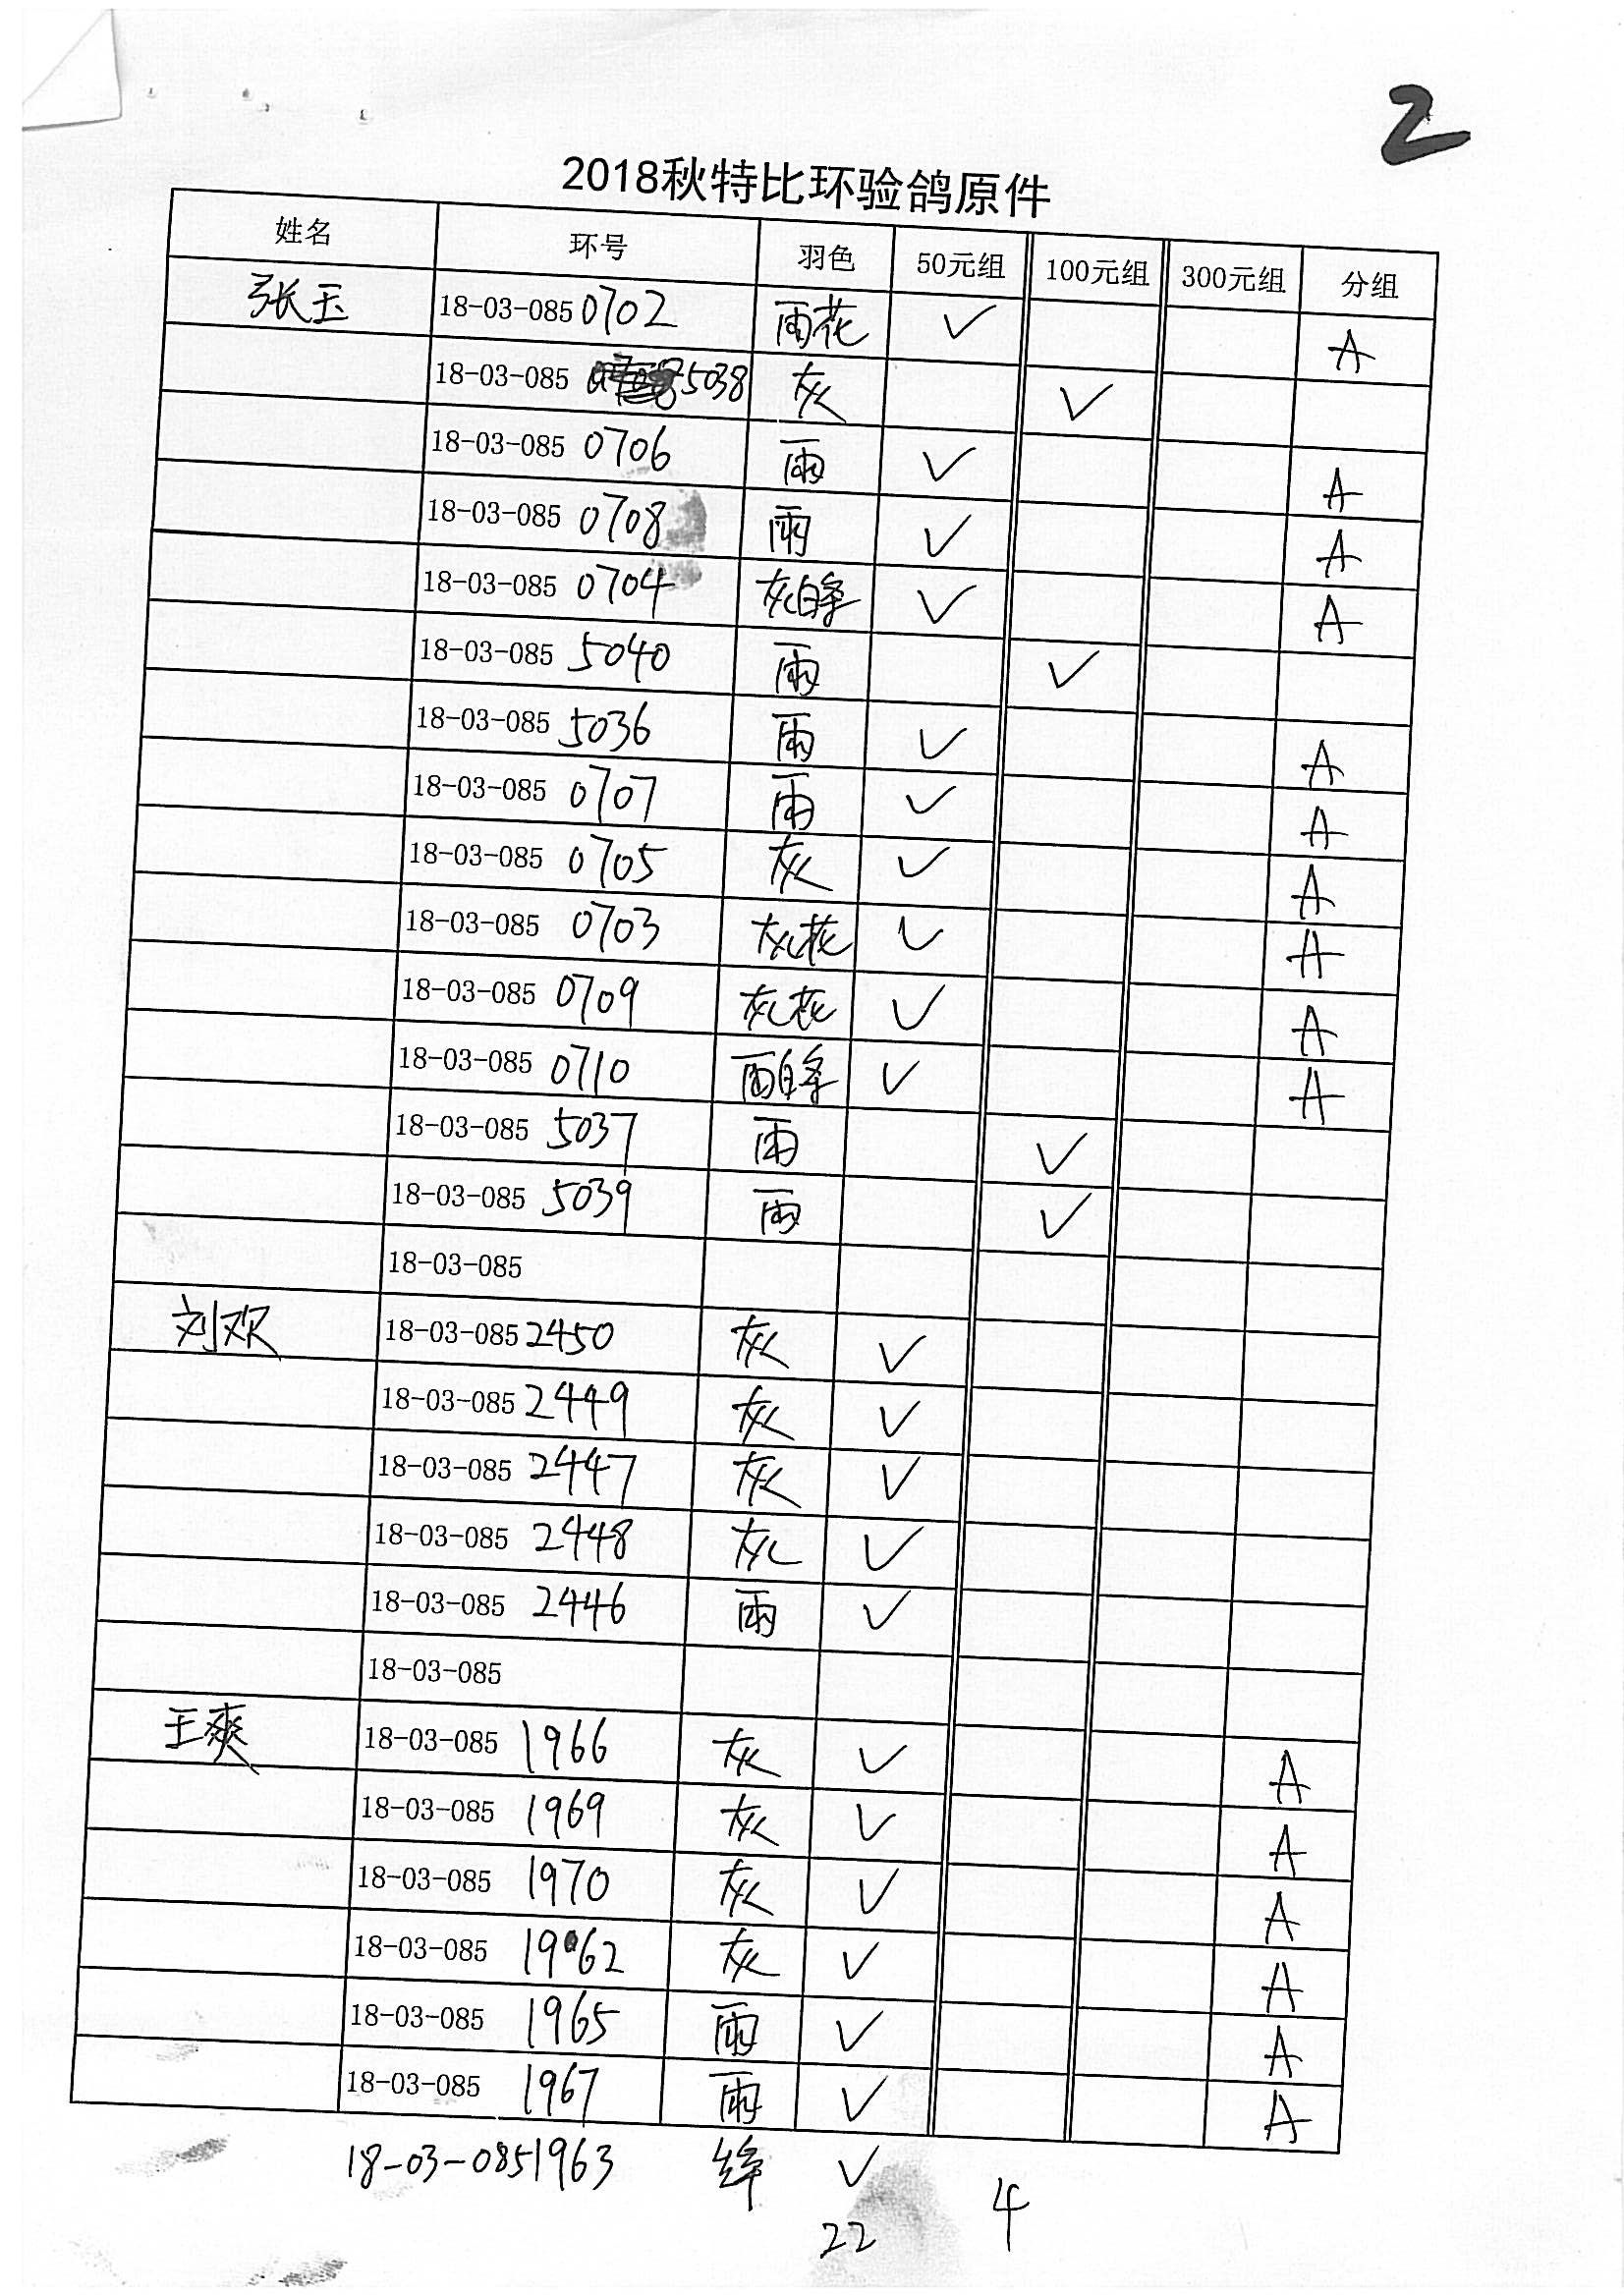 2
2018秋特比环验鸽原件
姓名 环号 羽色 50元组 100元组 300元组 分组
张玉 18-03-085 0702 雨花 ✓ A
18-03-085 5038 灰 ✓
18-03-085 0706 雨 ✓ A
18-03-085 0708 雨 ✓ A
18-03-085 0704 灰白条 ✓ A
18-03-085 5040 雨 ✓
18-03-085 5036 雨 ✓ A
18-03-085 0707 雨 ✓ A
18-03-085 0705 灰 ✓ A
18-03-085 0703 灰花 ✓ A
18-03-085 0709 灰花 ✓ A
18-03-085 0710 雨白条 ✓ A
18-03-085 5037 雨 ✓
18-03-085 5039 雨 ✓
18-03-085
刘欢 18-03-085 2450 灰 ✓
18-03-085 2449 灰 ✓
18-03-085 2447 灰 ✓
18-03-085 2448 灰 ✓
18-03-085 2446 雨 ✓
18-03-085
王爽 18-03-085 1966 灰 ✓ A
18-03-085 1969 灰 ✓ A
18-03-085 1970 灰 ✓ A
18-03-085 1962 灰 ✓ A
18-03-085 1965 雨 ✓ A
18-03-085 1967 雨 ✓ A
18-03-0851963 绛 ✓
22 4